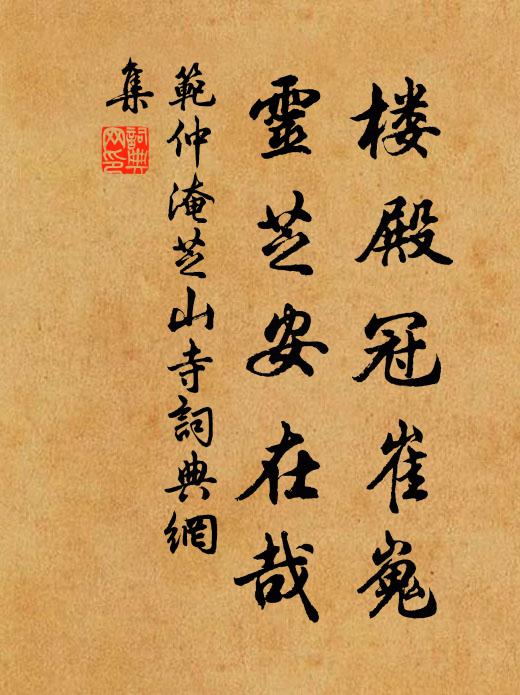 楼殿冠崔嵬
靈芝安在哉
範仲淹芝山寺詞典網
集
詞典
网印